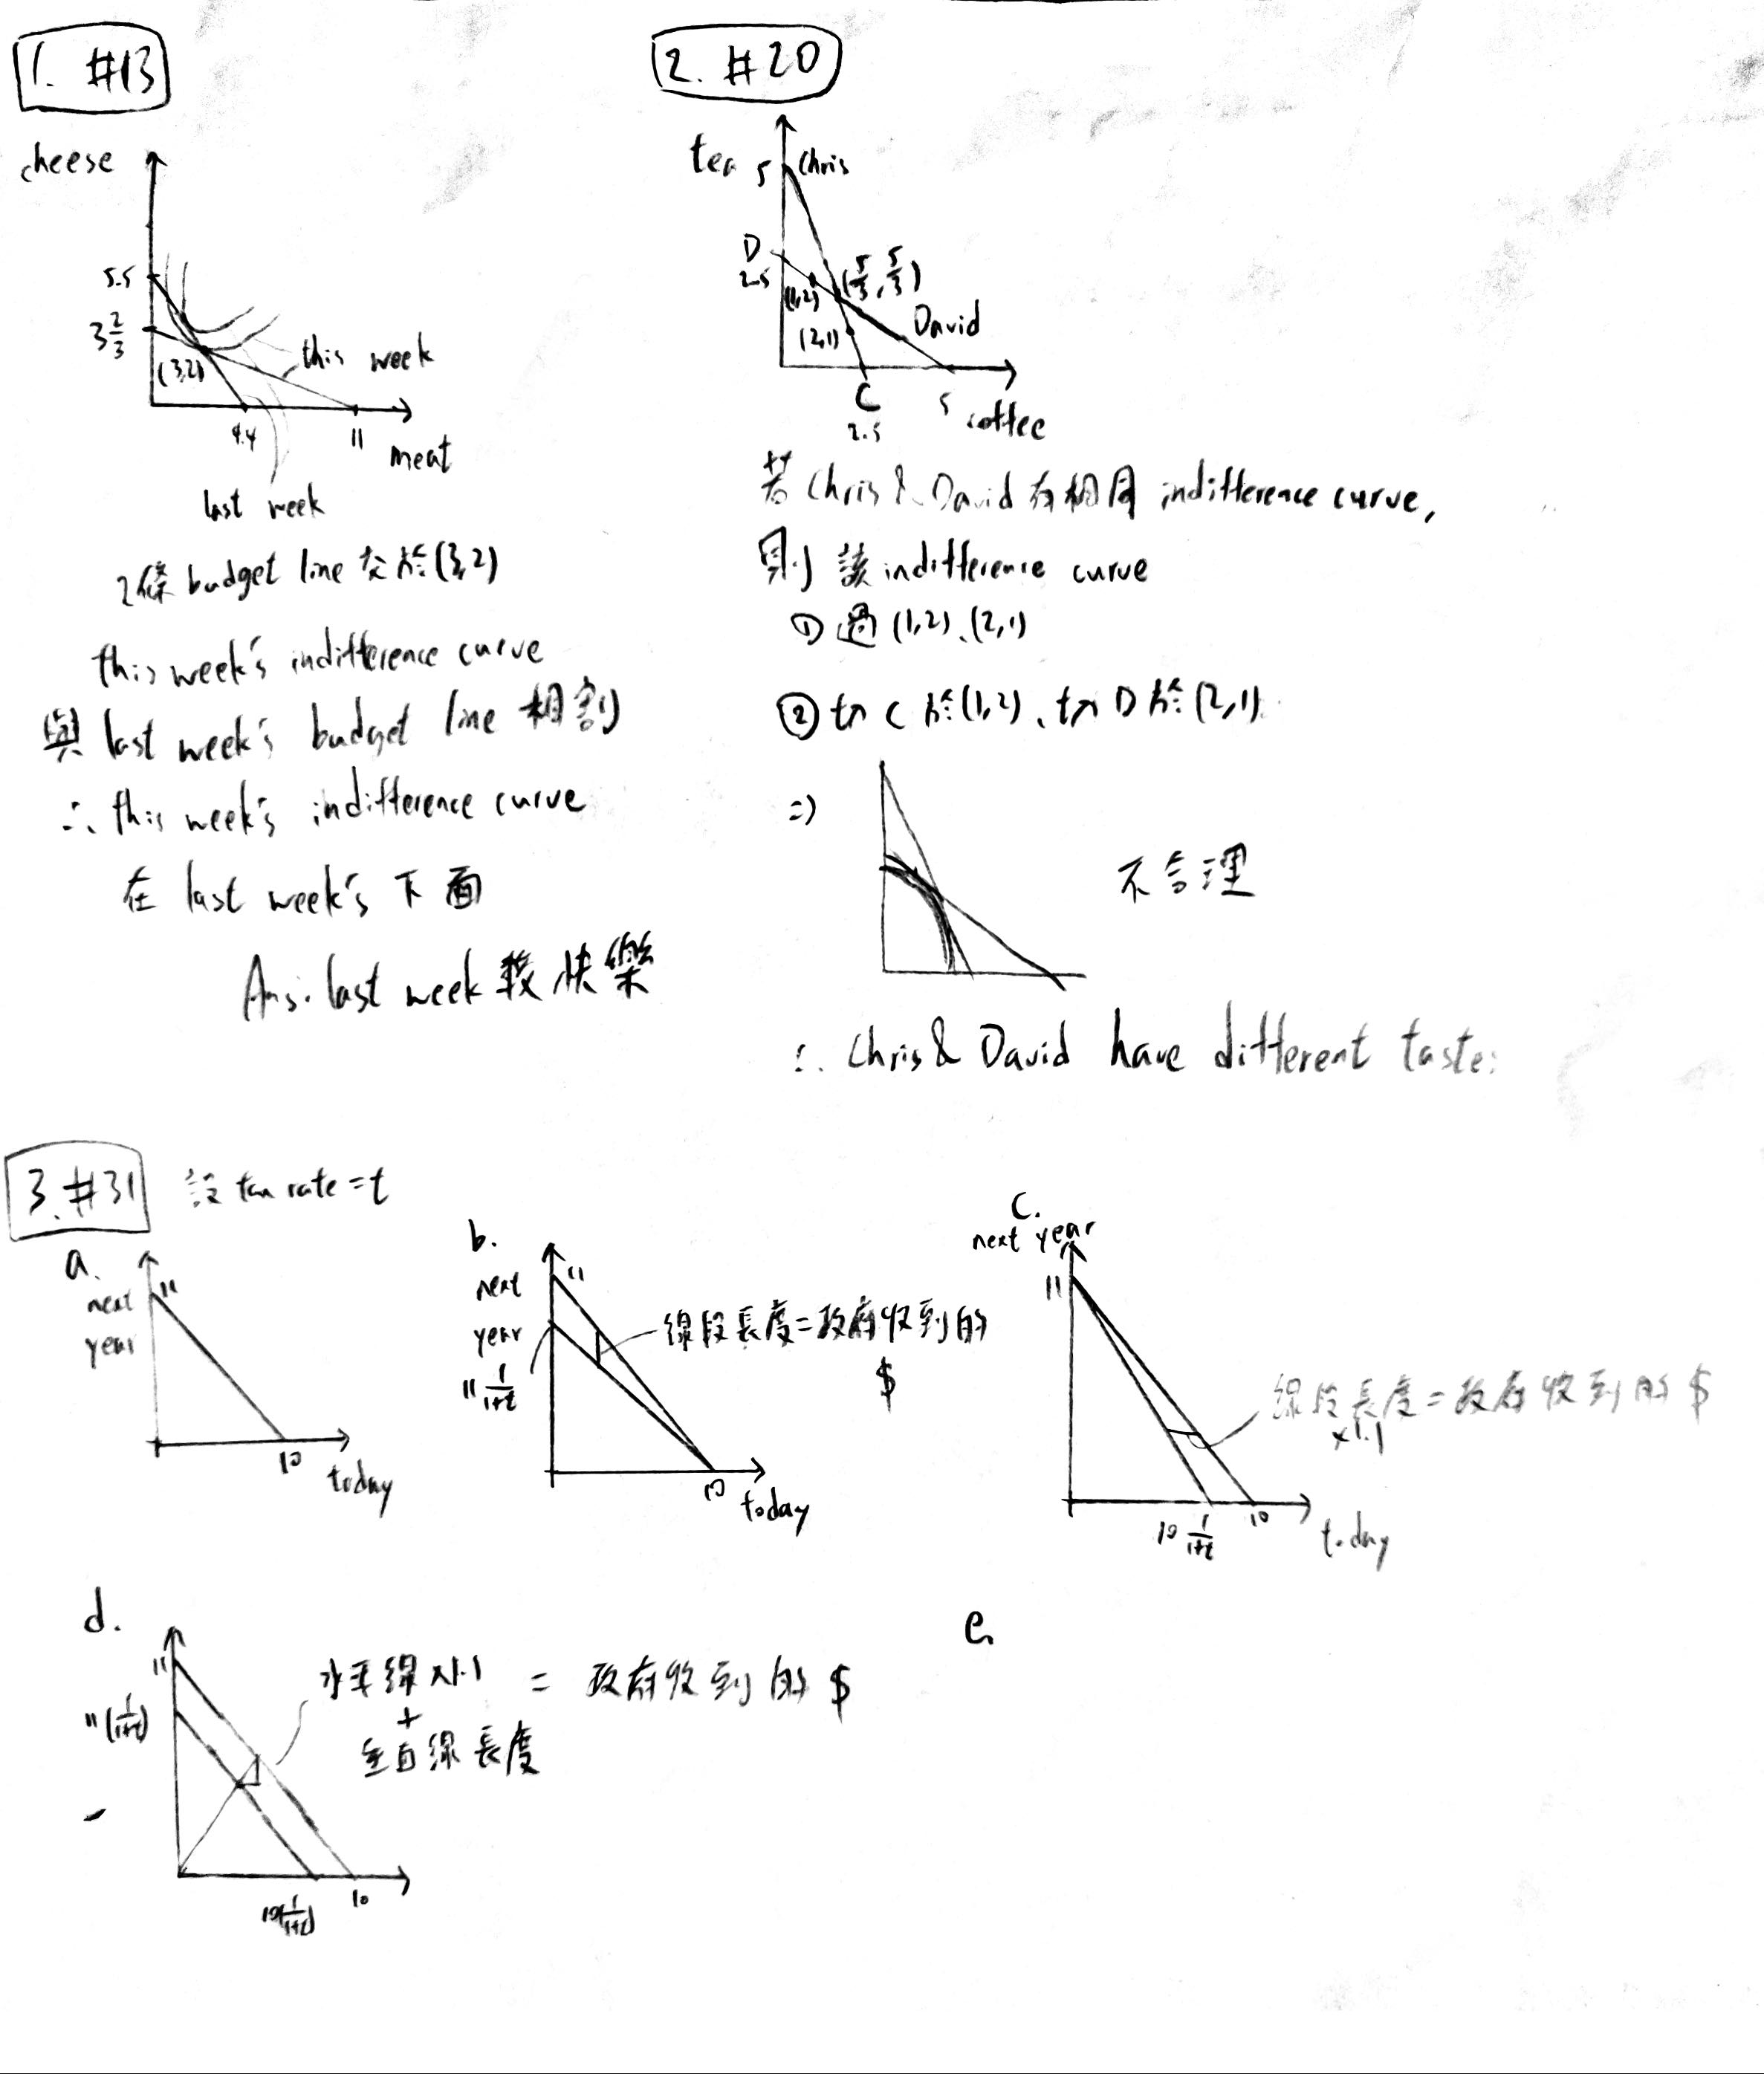 1. #13
cheese
5.5
3 2/3
(3,2)
this week
4.4
11
meat
last week
2條 budget line 交於(3,2)
this week's indifference curve
與 last week's budget line 相割
∴ this week's indifference curve
在 last week's 下面
Ans: last week 較快樂
2. #20
tea
5
Chris
D
2.5
(1,2)
(5/3, 5/3)
(2,1)
David
C
2.5
5
coffee
若 Chris & David 有相同 indifference curve,
則 該 indifference curve
① 過 (1,2)、(2,1)
② 切 C 於(1,2)、切 D 於(2,1)
⇒
不合理
∴ Chris & David have different tastes
3. #31
設 tax rate = t
a.
next
year
11
10
today
b.
next
year
11
11 1/(1+t)
線段長度=政府收到的
$
10
today
c.
next year
11
線段長度=政府收到的 $
×1.1
10 1/(1+t)
10
today
d.
11
11(1/(1+t))
水平線×1.1 = 政府收到的 $
+
垂直線長度
10(1/(1+t))
10
e.